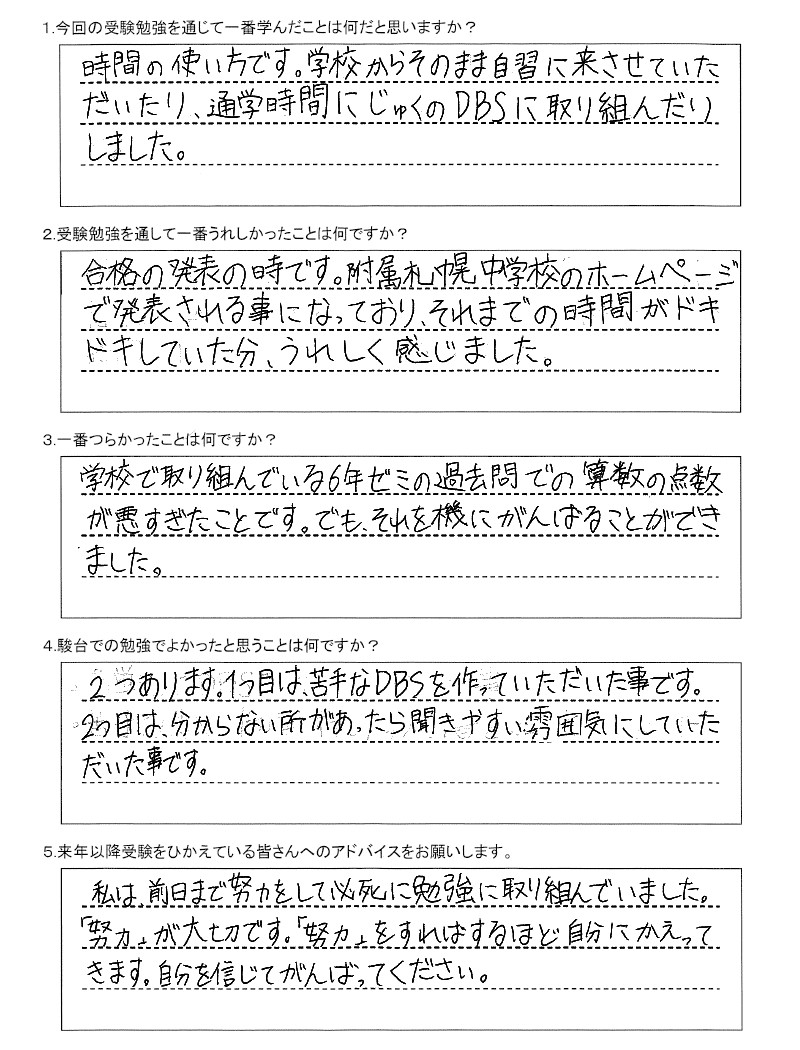 1.今回の受験勉強を通じて一番学んだことは何だと思いますか？
時間の使い方です。学校からそのまま自習に来させていた
だいたり、通学時間にじゅくのDBSに取り組んだり
しました。
2.受験勉強を通して一番うれしかったことは何ですか？
合格の発表の時です。附属札幌中学校のホームページ
で発表される事になっており、それまでの時間がドキ
ドキしていた分、うれしく感じました。
3.一番つらかったことは何ですか？
学校で取り組んでいる6年ゼミの過去問での算数の点数
が悪すぎたことです。でも、それを機にがんばることができ
ました。
4.駿台での勉強でよかったと思うことは何ですか？
2つあります。1つ目は、苦手なDBSを作っていただいた事です。
2つ目は、分からない所があったら聞きやすい雰囲気にしていた
だいた事です。
5.来年以降受験をひかえている皆さんへのアドバイスをお願いします。
私は、前日まで努力をして必死に勉強に取り組んでいました。
「努力」が大切です。「努力」をすればするほど自分にかえって
きます。自分を信じてがんばってください。